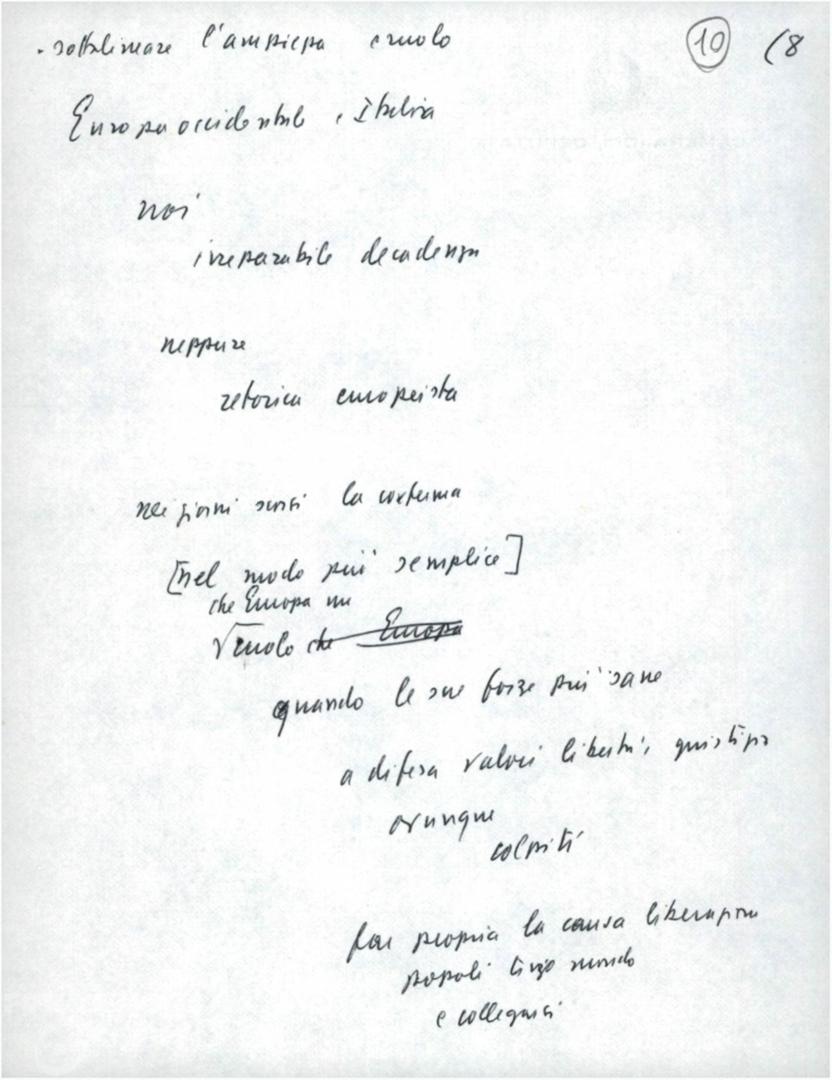 - sottolineare l'ampiezza e ruolo (10) (8
Europa occidentale e Italia
noi
irreparabile decadenza
neppure
retorica europeista
nei giorni scorsi la conferma
[nel modo più semplice]
che Europa un
ruolo che Europa
quando le sue forze più sane
a difesa valori libertà, giustizia
ovunque
colpiti
far propria la causa liberazione
popoli terzo mondo
e collegarsi